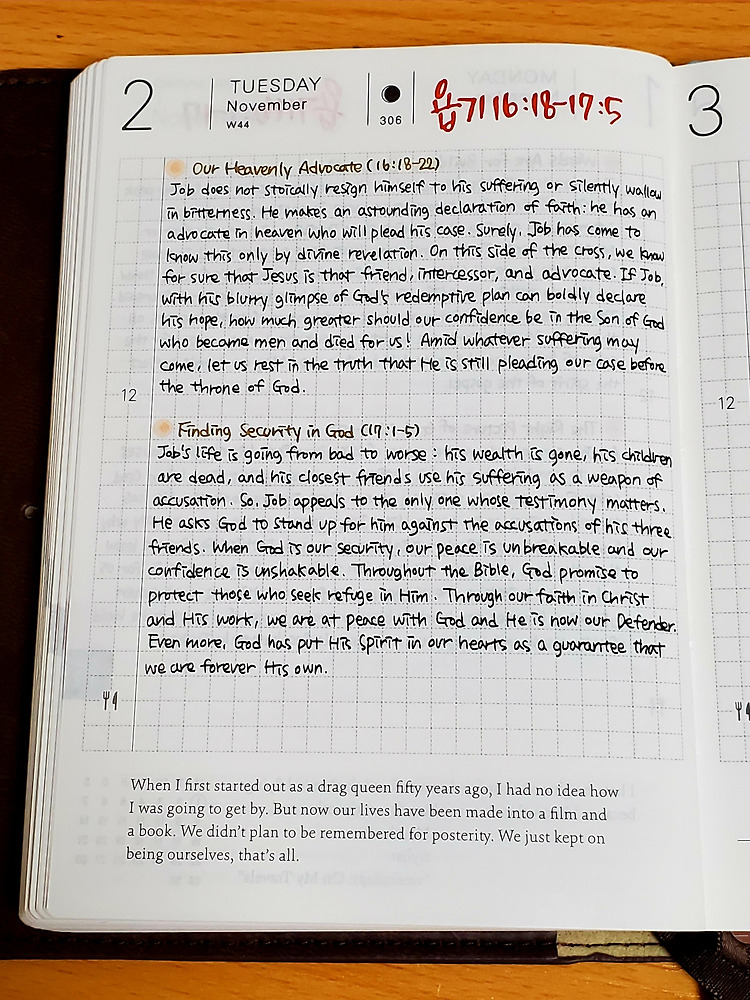 2
TUESDAY
November
W44
306
욥기16:18-17:5
3
Our Heavenly Advocate (16:18-22)
Job does not stoically resign himself to his suffering or silently wallow
in bitterness. He makes an astounding declaration of faith: he has an
advocate in heaven who will plead his case. Surely, Job has come to
know this only by divine revelation. On this side of the cross, we know
for sure that Jesus is that friend, intercessor, and advocate. If Job,
with his blurry glimpse of God's redemptive plan can boldly declare
his hope, how much greater should our confidence be in the Son of God
who became men and died for us! Amid whatever suffering may
come, let us rest in the truth that He is still pleading our case before
the throne of God.
12
12
Finding Security in God (17:1-5)
Job's life is going from bad to worse: his wealth is gone, his children
are dead, and his closest friends use his suffering as a weapon of
accusation. So, Job appeals to the only one whose testimony matters.
He asks God to stand up for him against the accusations of his three
friends. When God is our security, our peace is unbreakable and our
confidence is unshakable. Throughout the Bible, God promise to
protect those who seek refuge in Him. Through our faith in Christ
and His work, we are at peace with God and He is now our Defender.
Even more, God has put His Spirit in our hearts as a guarantee that
we are forever His own.
When I first started out as a drag queen fifty years ago, I had no idea how
I was going to get by. But now our lives have been made into a film and
a book. We didn't plan to be remembered for posterity. We just kept on
being ourselves, that's all.